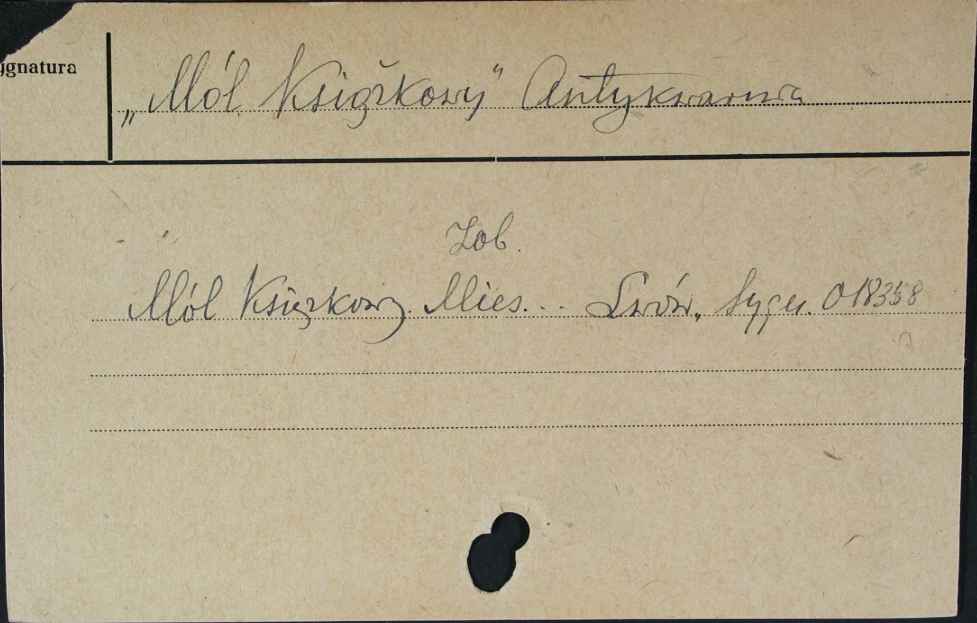 ygnatura
„Mól Książkowy" Antykwarnia
Zob.
Mól Książkowy. Mies... Lwów. Sygn. 018358